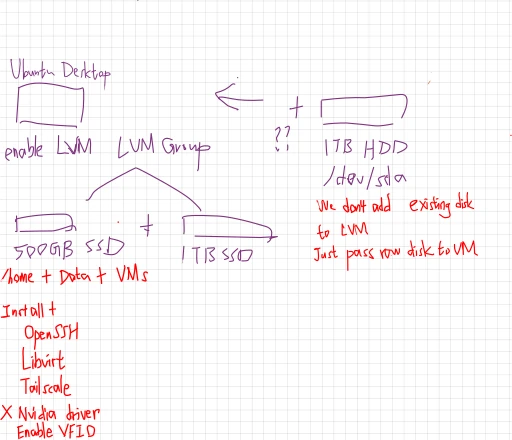 Ubuntu Desktop
enable LVM
LVM Group
+
??
1TB HDD
/dev/sda
We don't add existing disk
to LVM
Just pass row disk to VM
500GB SSD
+
1TB SSD
/home + Data + VMs
Install +
OpenSSH
Libvirt
Tailscale
X Nvidia driver
Enable VFID